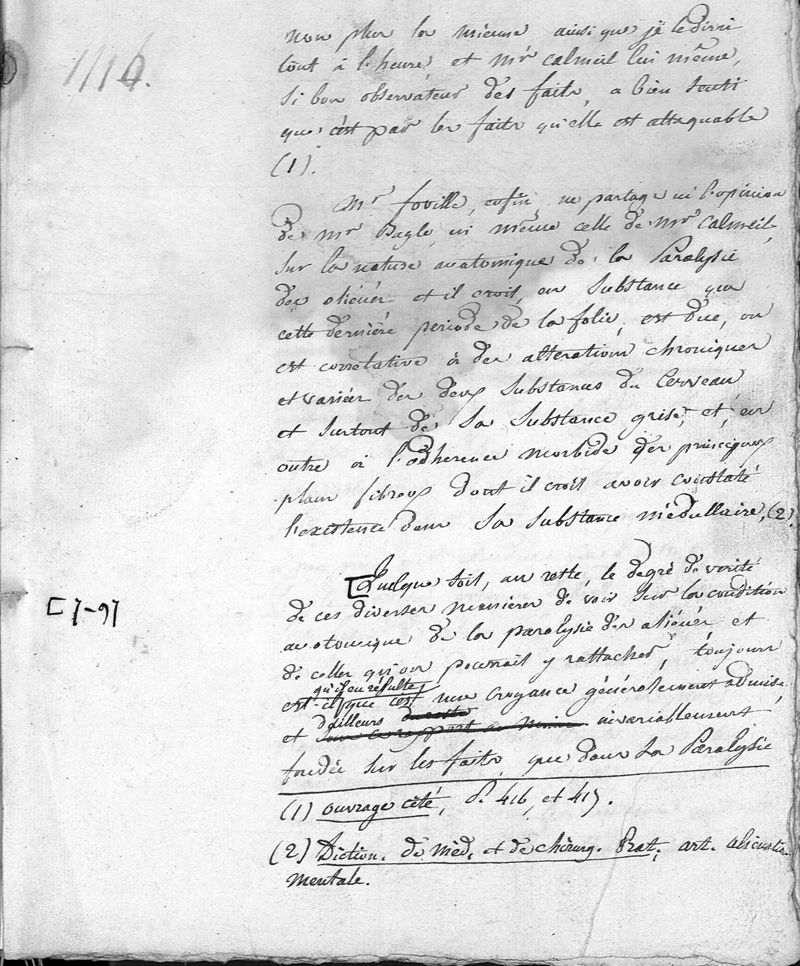 1116.
non plus la mienne ainsi que je le dirai
tout à l'heure, et mr calmeil lui même,
si bon observateur des faits, a bien senti
que c'est par les faits qu'elle est attaquable
(1).
Mr foville, enfin, ne partage ni l'opinion
de mr Bayle, ni même celle de mr Calmeil,
sur la nature anatomique de la Paralysie
des aliénés et il croit, en substance que
cette dernière periode de la folie, est due, ou
est corrélative à des altérations chroniques
et variées des deux substances du Cerveau
et surtout de sa substance grise, et, en
outre à l'adherence morbide des principaux
plans fibreux dont il croit avoir constaté
l'existence dans sa substance médullaire, (2).
[Quelque soit, au reste, le degré de verité
[7-97
de ces diverses manières de voir sur la condition
anatomique de la paralysie des aliénés et
de celles qu'on pourrait y rattacher, toujours
qu'il en résulte
est-il que c'est une croyance généralement admise
d'ailleurs
et invariablement
fondée sur les faits, que dans la Paralysie
(1) ouvrage cité, p. 416, et 417.
(2) Diction. de méd. et de chirurg. Prat, art. aliénation
mentale.